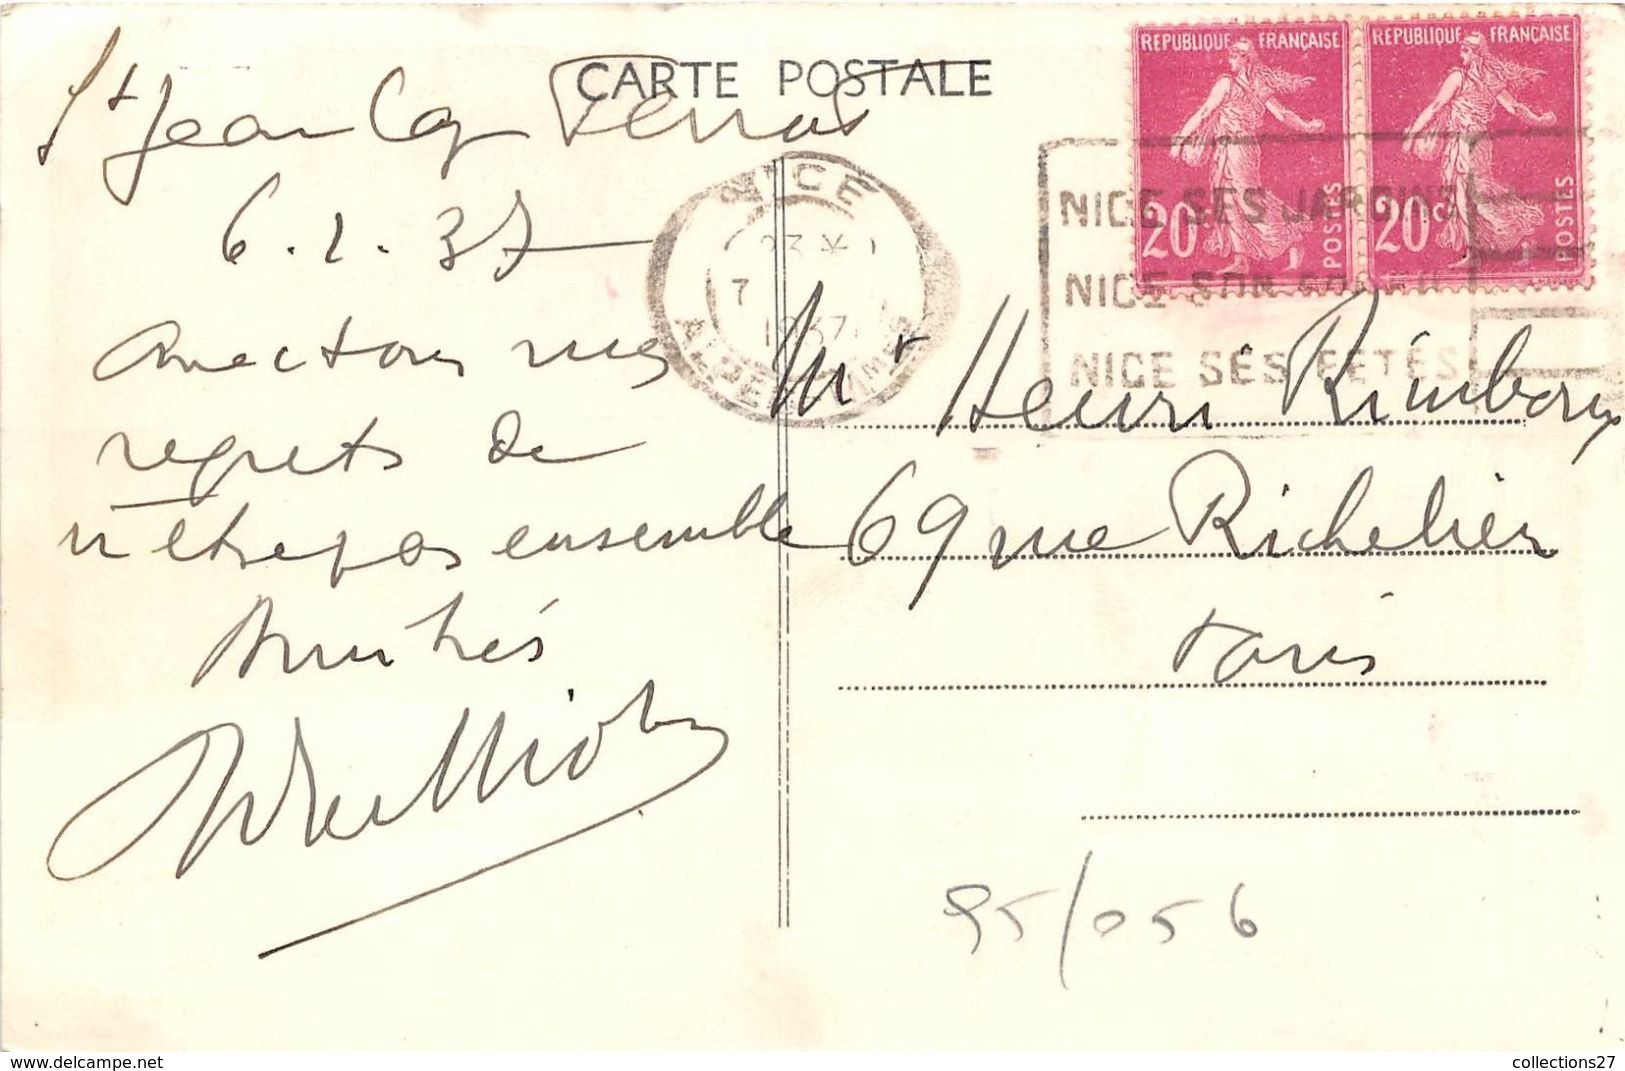 CARTE POSTALE
St Jean Cap Ferrat
6.1.37
Avec tous mes
regrets de
n'être pas ensemble
Amitiés
REPUBLIQUE FRANÇAISE
20c POSTES
REPUBLIQUE FRANÇAISE
20c POSTES
NICE
23
7
1937
ALPES MMES
NICE SES JARDINS
NICE SON
NICE SES FETES
Mr Henri
69 rue Richelieu
Paris
95/056
collections27